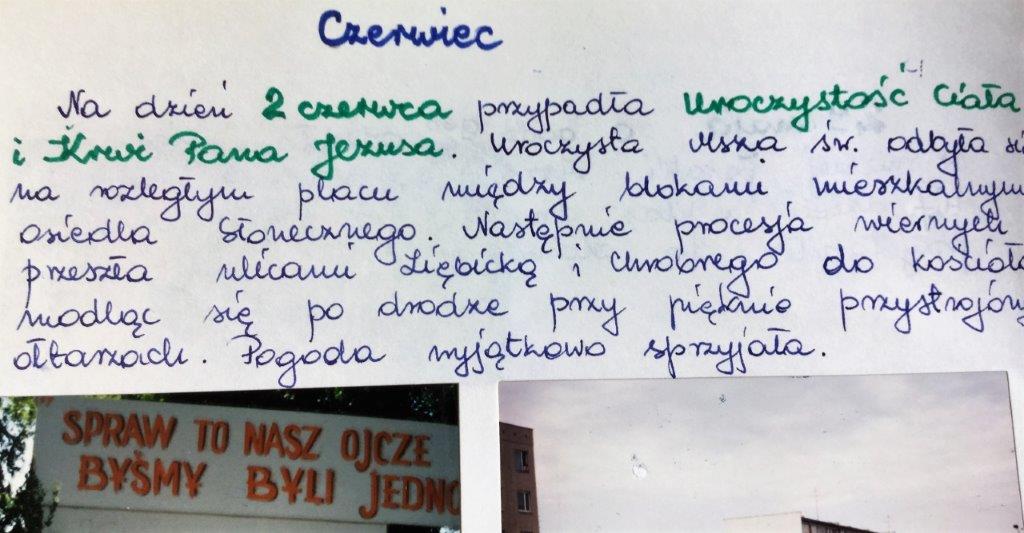 Czerwiec
Na dzień 2 czerwca przypadła Uroczystość Ciała
i Krwi Pana Jezusa. Uroczysta Msza św. odbyła si
na rozległym placu między blokami mieszkalnymi
osiedla Słonecznego. Następnie procesja wiernych
przeszła ulicami Ziębicką i Chrobrego do kościoła
modląc się po drodze przy pięknie przystrojony
ołtarzach. Pogoda wyjątkowo sprzyjała.
SPRAW TO NASZ OJCZE
BYŚMY BYLI JEDNO